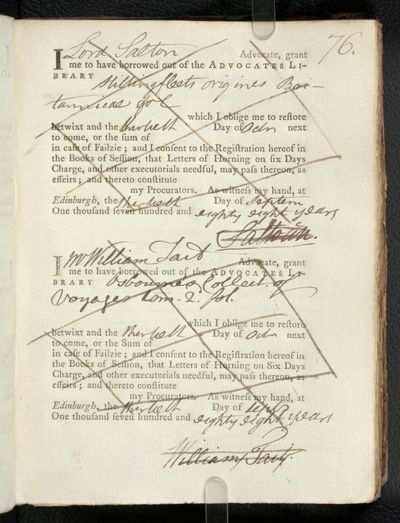 76.
I Lord Salton Advocate, grant
me to have borrowed out of the ADVOCATES LI-
BRARY Stillingfleets origines Bri-
tannicae fol
which I oblige me to restore
betwixt and the thertieth Day of Octr next
to come, or the sum of
in case of Failzie; and I consent to the Registration hereof in
the Books of Session, that Letters of Horning on six Days
Charge, and other executorials needful, may pass thereon, as
effeirs; and thereto constitute
my Procurators. As witness my hand, at
Edinburgh, the thertieth Day of Septem
One thousand seven hundred and eighty eight years
Saltoun.
I Mr William Tait Advocate, grant
me to have borrowed out of the ADVOCATES LI-
BRARY Osbournes Collect. of
Voyages tom. 2. fol.
which I oblige me to restore
betwixt and the thertieth Day of Octr next
to come, or the Sum of
in case of Failzie; and I consent to the Registration hereof in
the Books of Session, that Letters of Horning on Six Days
Charge, and other executorials needful, may pass thereon, as
effeirs; and thereto constitute
my Procurators. As witness my hand, at
Edinburgh, the thertieth Day of
One thousand seven hundred and eighty eight years
William Tait.